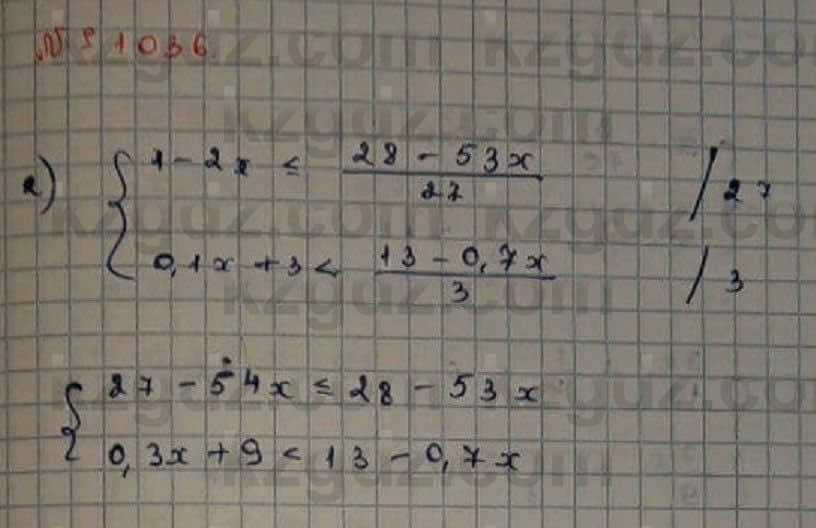 № 1036.
а) { 1 - 2x ≤ (28 - 53x)/27 / 27
0,1x + 3 < (13 - 0,7x)/3 / 3
{ 27 - 54x ≤ 28 - 53x
0,3x + 9 < 13 - 0,7x
kzgdz.com